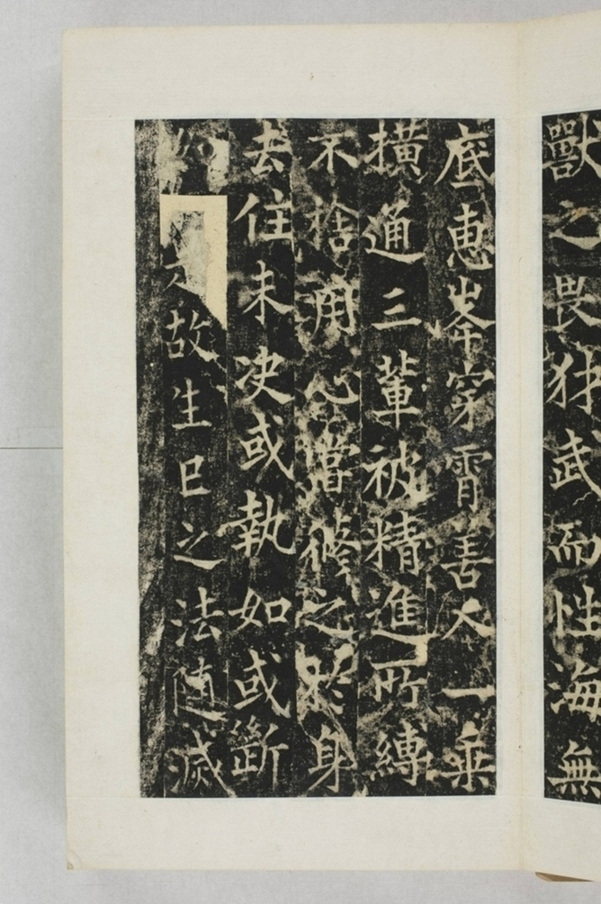 獸之畏狱武而性海無
底惠峯穿霄善人一乘
撗通三輩被精進所縛
不捨用心當修之於身
去住未决或執如或斷
故生巳之法随滅